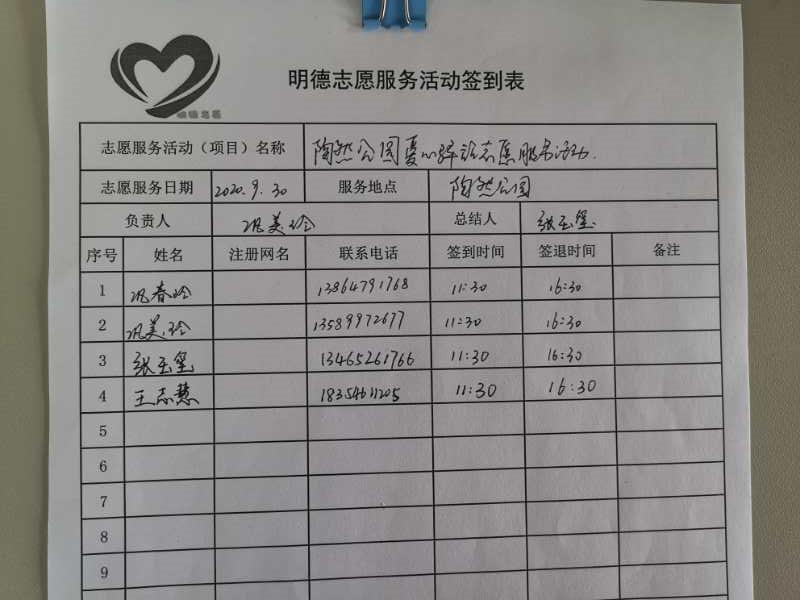 明德志愿
明德志愿服务活动签到表
志愿服务活动（项目）名称 陶然公园爱心驿站志愿服务活动.
志愿服务日期 2020.9.30 服务地点 陶然公园
负责人 巩美玲 总结人 张玉玺
序号 姓名 注册网名 联系电话 签到时间 签退时间 备注
1 巩春玲 13864791768 11:30 16:30
2 巩美玲 13589972677 11:30 16:30
3 张玉玺 13465261766 11:30 16:30
4 王志慧 18354611205 11:30 16:30
5
6
7
8
9